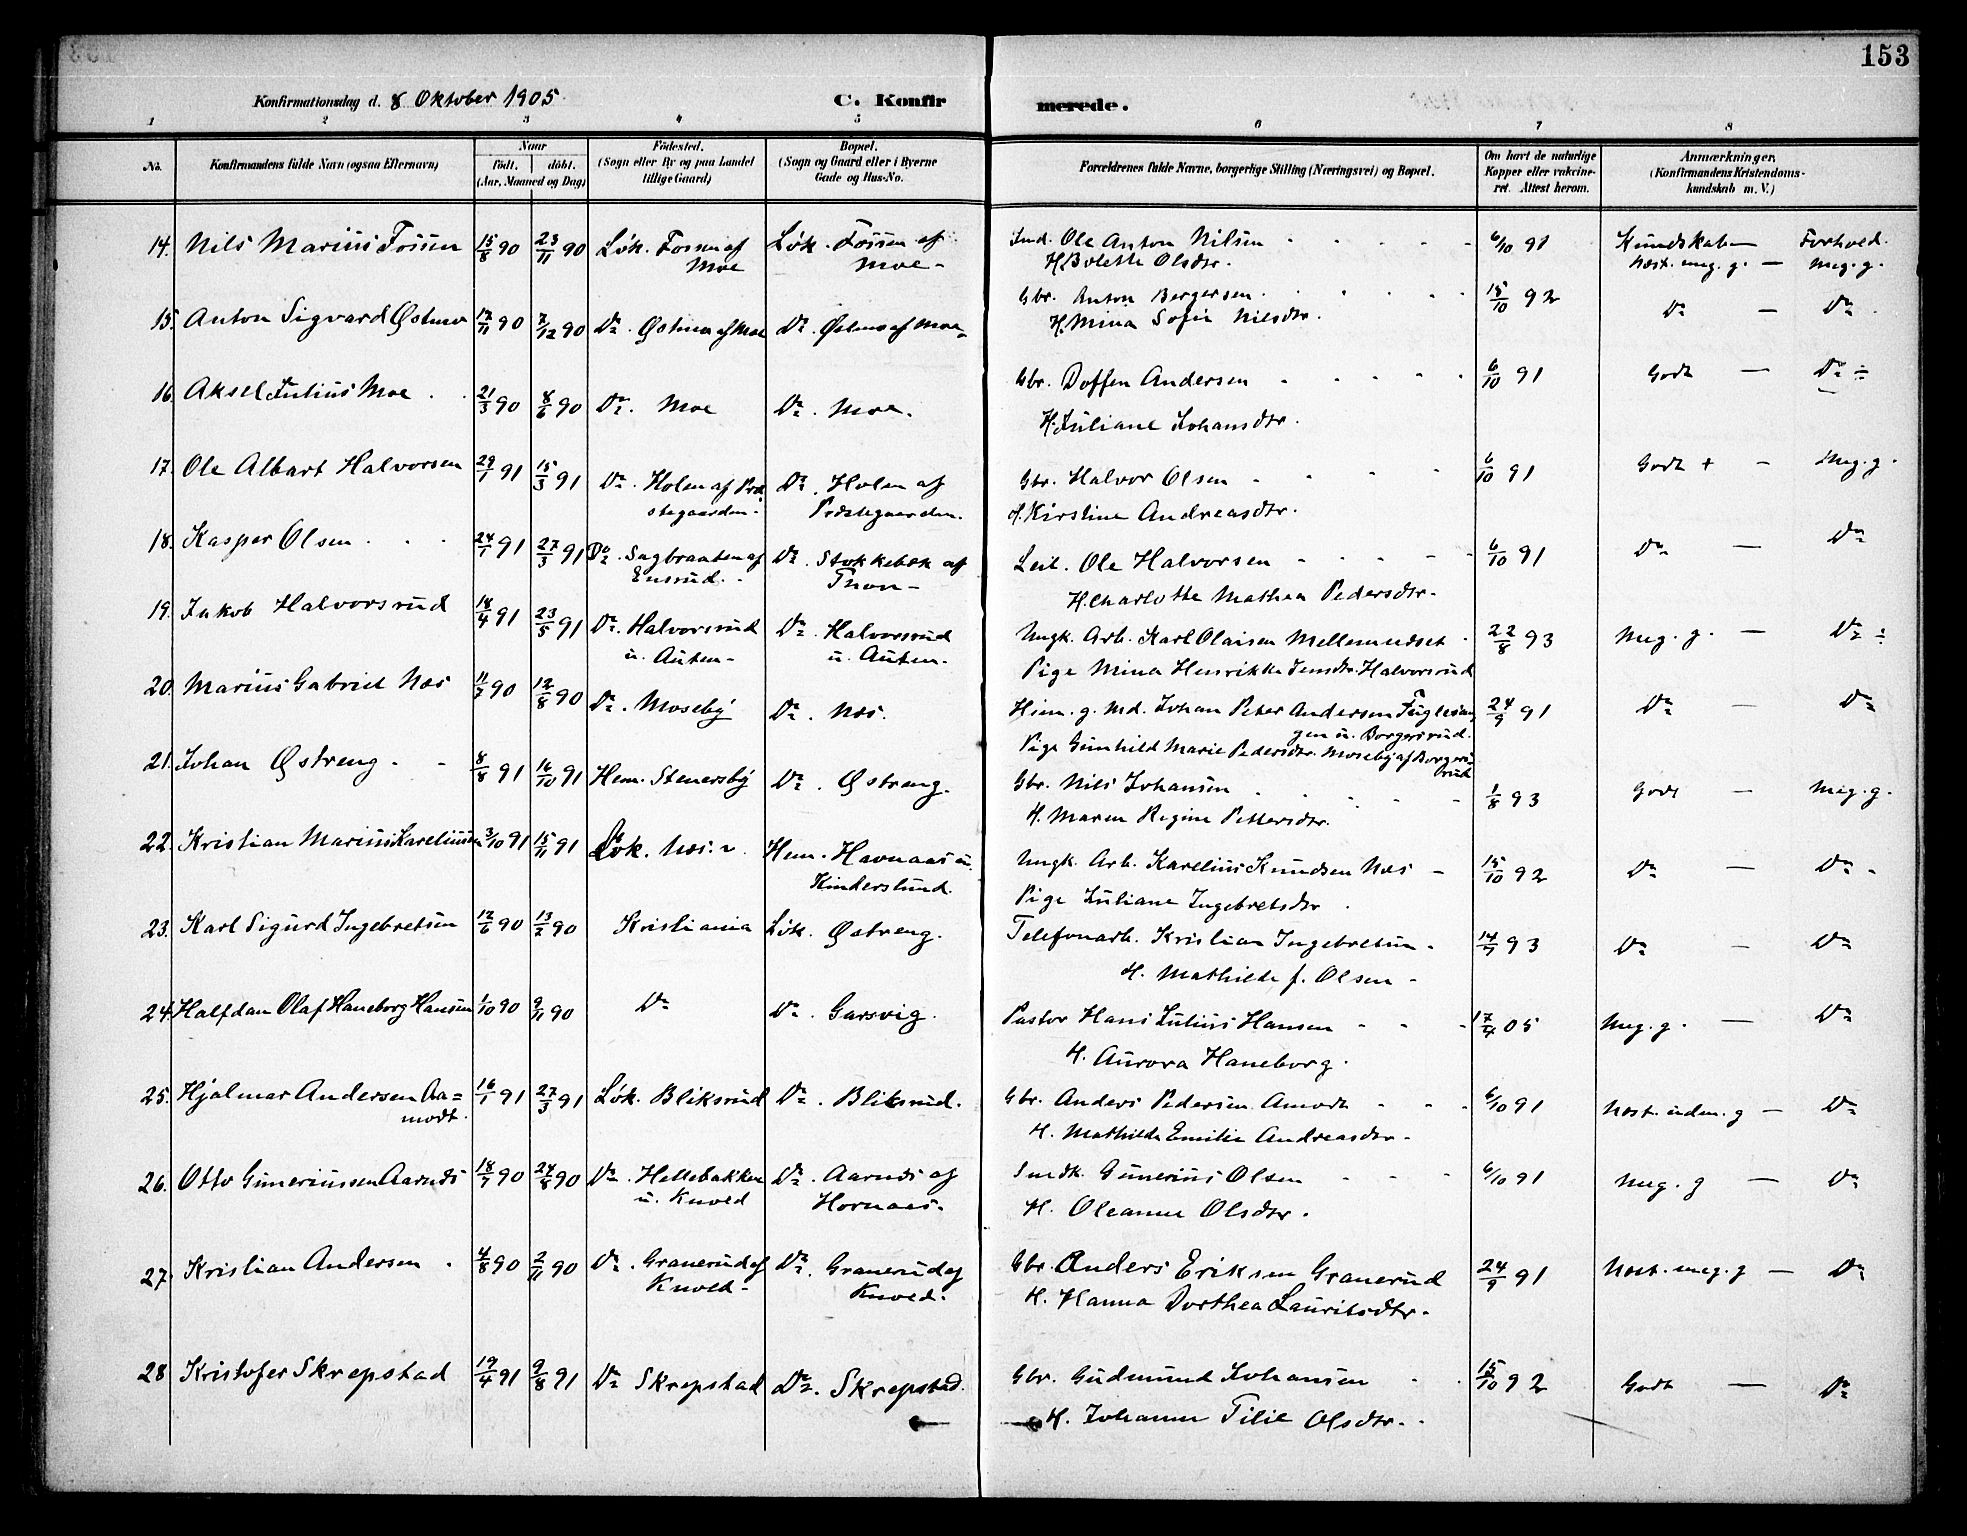 153
Konfirmationsdag d. 8 Oktober 1905. C. Konfirmerede.
1 2 3 4 5 6 7 8
No. Konfirmandens fulde Navn (ogsaa Efternavn) Naar født. døbt. (Aar, Maaned og Dag) Fødested. (Sogn eller By og paa Landet tillige Gaard) Bopæl. (Sogn og Gaard eller i Byerne Gade og Hus-No. Forældrenes fulde Navne, borgerlige Stilling (Næringsvei) og Bopæl. Om havt de naturlige Kopper eller vakcineret. Attest herom. Anmærkninger. (Konfirmandens Kristendomskundskab m. V.)
14. Nils Marius Fossen 15/8 90 23/11 90 Løk. Fossen af Løk. Fossen af Ind. Ole Anton Nilsen 6/10 91 Kundskab — Forhold.
Moe Moe - H. Bolette Olsdtr. Næst. meg. g. — Meg. g.
15. Anton Sigvard Østmo 17/11 90 7/12 90 Do. Østmo af Moe Do. Østmo af Moe - Gbr. Anton Bergersen 15/10 92 Do — Do.
H. Mina Sofie Nilsdtr.
16. Aksel Julius Moe 21/3 90 8/6 90 Do. Moe Do. Moe. Gbr. Doffen Andersen 6/10 91 Godt — Do ÷
H. Juliane Johansdtr.
17. Ole Albart Halvorsen 29/1 91 15/3 91 Do. Holen af Præ Do. Holen af Gbr. Halvor Olsen 6/10 91 Godt + - Meg. g.
stegaarden - Præstegaarden. H. Kirstine Andreasdtr.
18. Kasper Olsen 24/1 91 27/3 91 Do. Sagbraaten af Do. Stokkebæk af Leil. Ole Halvorsen 6/10 91 Do — Do
Ensrud. - Thon - H. Charlotte Mathea Pedersdtr.
19. Jakob Halvorsrud 18/4 91 23/5 91 Do. Halvorsrud Do. Halvorsrud Ungk. Arb. Karl Olaisen Mellemnæset 22/8 93 Meg. g. — Do ÷
u. Auten - u. Auten. Pige Mina Henrikke Jensdtr. Halvorsrud
20. Marius Gabriel Næs 11/7 90 12/8 90 Do. Moseby Do. Næs. Hiem. g. Md. Johan Peter Andersen Fuglesan 24/9 91 Do — Do
gen u. Borgersrud.
Pige Gunhild Marie Pedersdtr. Moseby af Borgers
brud
21. Johan Østreng 8/8 91 16/10 91 Hem. Stenersby Do. Østreng. Gbr. Nils Johansen 1/8 93 Godt — Meg. g.
H. Maren Regine Pettersdtr.
22. Kristian Marius Kareliussen 3/10 91 15/11 91 Løk. Næs. Hem. Havnaas u. Ungk. Arb. Karelius Knudsen Næs - 15/10 92 Do — Do.
Kinderslund. Pige Juliane Ingebretsdtr.
23. Karl Sigurd Ingebretsen 12/6 90 13/7 90 Kristiania Løk. Østreng. Telefonarb. Kristian Ingebretsen. 14/7 93 Do — Do
H. Mathilde f. Olsen -
24. Halfdan Olaf Haneborg Hansen 1/10 90 9/11 90 Do Do. Garsvig. Pastor Hans Julius Hansen 17/4 05 Meg. g. — Do
H. Aurora Haneborg.
25. Hjalmar Andersen Aa= 16/1 91 27/3 91 Løk. Bliksrud Do. Bliksrud. Gbr. Anders Pedersen Amodt 6/10 91 Næst. udm. g — Do
modt. H. Mathilde Emilie Andreasdtr.
26. Otto Guneriussen Aarnæs 18/7 90 24/8 90 Do. Hellebakken Do. Aarnæs af Smdk. Gunerius Olsen 6/10 91 Meg. g — Do
u. Knold Hornaas. H. Oleanne Olsdtr.
27. Kristian Andersen 4/8 90 2/11 90 Do. Granerud af Do. Granerud af Gbr. Anders Eriksen Granerud 24/9 91 Næst. meg. g — Do
Knold - Knold. H. Hanna Dorthea Lauritsdtr.
28 Kristofer Skrepstad 19/4 91 9/8 91 Do Skrepstad Do. Skrepstad. Gbr. Gudmund Johansen 15/10 92 Godt — Do
H. Johanne Tilie Olsdtr.